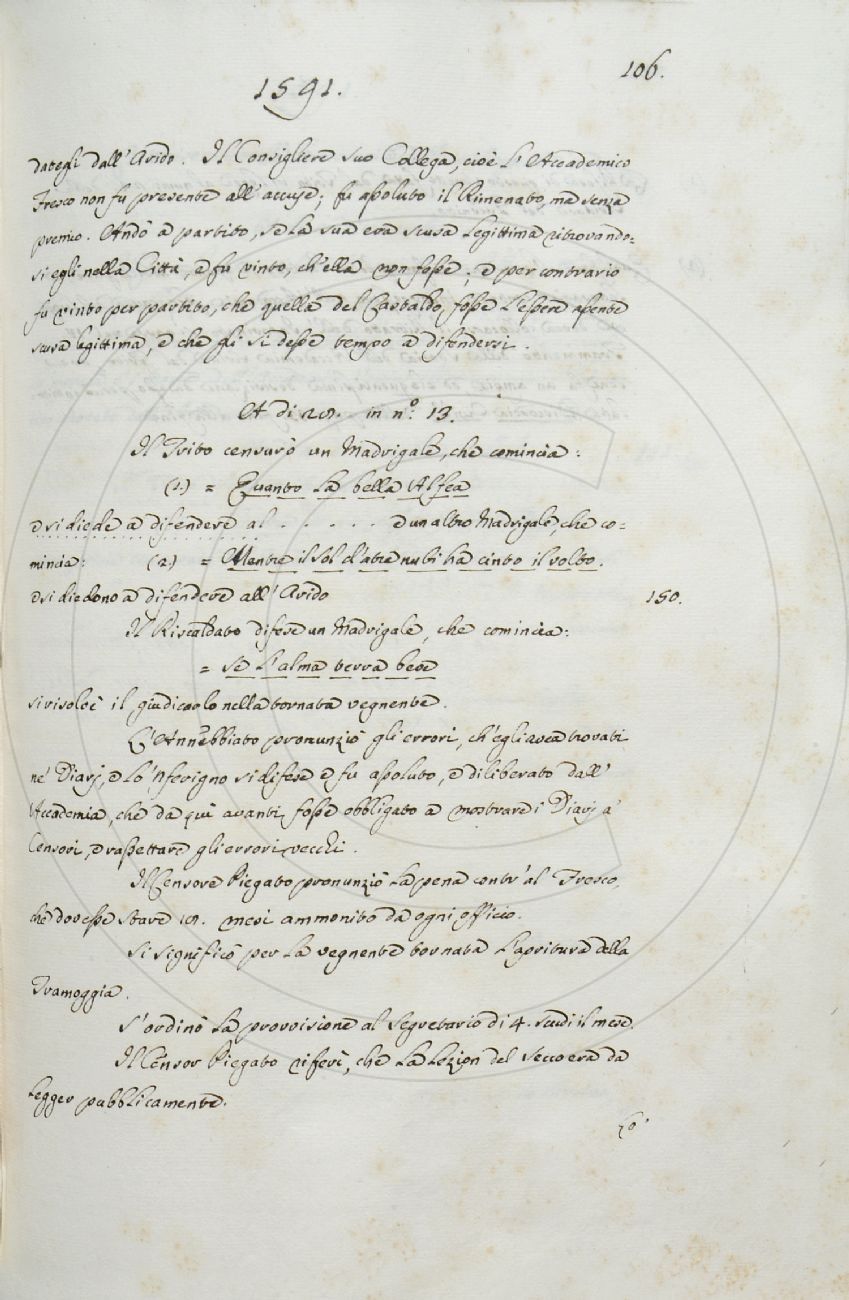 1591.
106.
dategli dall' Arido. Il Consigliere suo Collega, cioè l'Accademico
Fresco non fu presente all' accuse; fu assoluto il Rimenato, ma senza
premio. Andò a partito, se la sua era scusa legittima ritrovando=
si egli nella Città, e fu vinto, ch'ella non fosse; e per contrario
fu vinto per partito, che quella del Gastaldo, fosse l'essere assente
scusa legittima, e che gli si desse tempo a difendersi.
A di 28. in n.º 13.
Il Trito censurò un Madrigale, che comincia:
(1.) = Quanto la bella Alfea
e si diede a difendere al . . . . . e un altro Madrigale, che co=
mincia: (2.) = Mentre il Sol d'atre nubi ha cinto il volto.
e si diedono a difendere all' Arido
150.
Il Riscaldato difese un Madrigale, che comincia:
= Se l'alma terra beve
si risolvè il giudicarlo nella tornata vegnente.
L'Annebbiato pronunziò gli errori, ch'egli avea trovati
ne' Diarj, e lo 'nferigno si difese e fu assoluto, e diliberato dall'
Accademia, che da quì avanti fosse obbligato a mostrare i Diarj a'
Censori, e rassettare gli errori vecchi.
Il Censore Piegato pronunziò la pena contr' al Fresco,
che dovesse stare 18. mesi ammonito da ogni officio.
Si significò per la vegnente tornata l'apritura della
Tramoggia.
S'ordinò la provvisione al Segretario di 4. scudi il mese.
Il Censor Piegato riferì, che la Lezion del Secco era da
legger pubblicamente.
Lo'